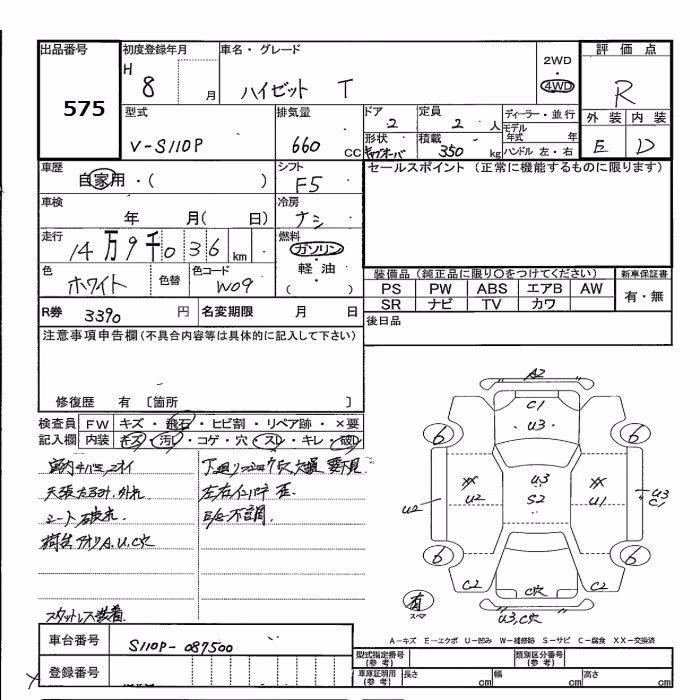 出品番号
575
初度登録年月
H 8 月
車名・グレード
ハイゼット T
2WD
・
4WD
評価点
R
型式
V-S110P
排気量
660 CC
ドア
2
定員
2 人
形状
キャブオーバ
積載
350 kg
ディーラー・並行
モデル年式 年
ハンドル 左・右
外装 内装
E D
車歴
自家用・( )
シフト
F5
セールスポイント (正常に機能するものに限ります)
車検
年 月( 日)
冷房
ナシ
走行
14万9千036 km
燃料
ガソリン
・
軽油
( )
色
ホワイト
色替
色コード
W09
装備品 (純正品に限り○をつけてください)
PS PW ABS エアB AW
SR ナビ TV カワ
新車保証書
有・無
R券 3390 円
名変期限 月 日
後日品
注意事項申告欄(不具合内容等は具体的に記入して下さい)
修復歴 有 〔箇所 〕
検査員記入欄
FW キズ・飛石・ヒビ割・リペア跡・×要
内装 キズ・汚レ・コゲ・穴・スレ・キレ・破レ
天張たるみ、外れ
シート破れ.
左右インパネ歪.
E/G不調.
荷台アオリA,U,C穴
スタットレス装着
A2
C1
U3
6
6
XX
U2
U3
S2
XX
U1
U2
U3
C1
6
6
C2
C穴
C2
有
スペア
U3,C穴
A-キズ E-エクボ U-凹み W-補修跡 S-サビ C-腐食 XX-交換済
車台番号
S110P-087500
登録番号
型式指定番号(参考)
類別区分番号(参考)
車庫証明用(参考)
長さ cm
幅 cm
高さ cm